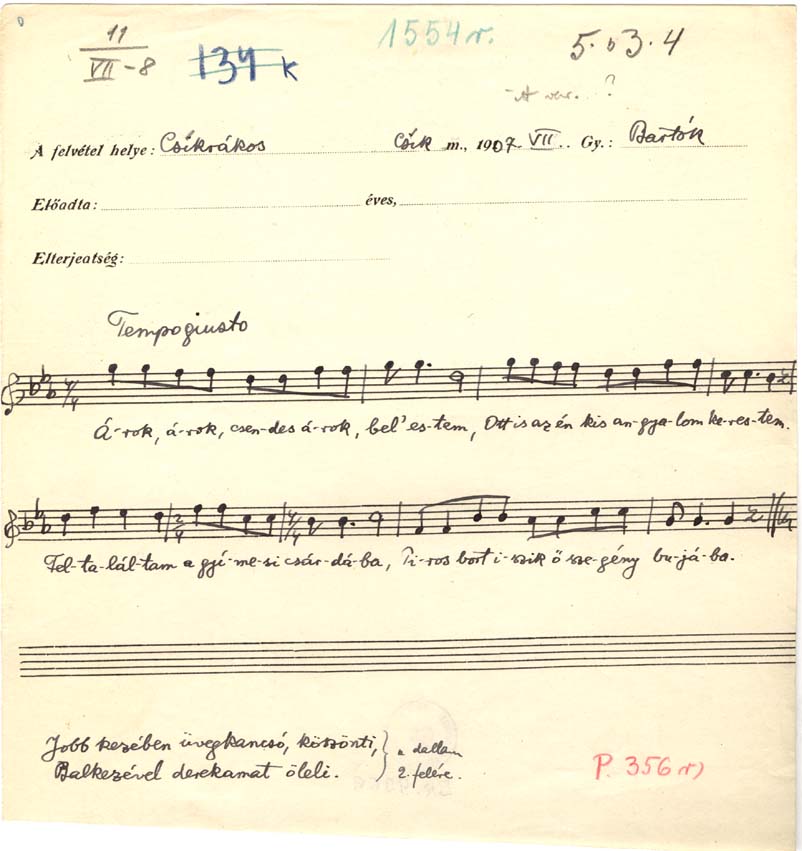 11
VII-8
134 K
1554 r.
5. b3. 4
A var. ?
A felvétel helye: Csíkrákos Csík m., 1907. VII. Gy.: Bartók
Előadta: éves,
Elterjeatség:
Tempo giusto
4/4
Á-rok, á-rok, csen-des á-rok, bel'es-tem, Ott is az én kis an-gya-lom ke-res-tem.
2/4 4/4
Fel-ta-lál-tam a gyi-me-si csár-dá-ba, Pi-ros bort i-szik ő sze-gény bu-já-ba.
Jobb kezében üvegkancsó, köszönti, } a dallam
Balkezével derekamat öleli. } 2. felére.
P. 356 r)